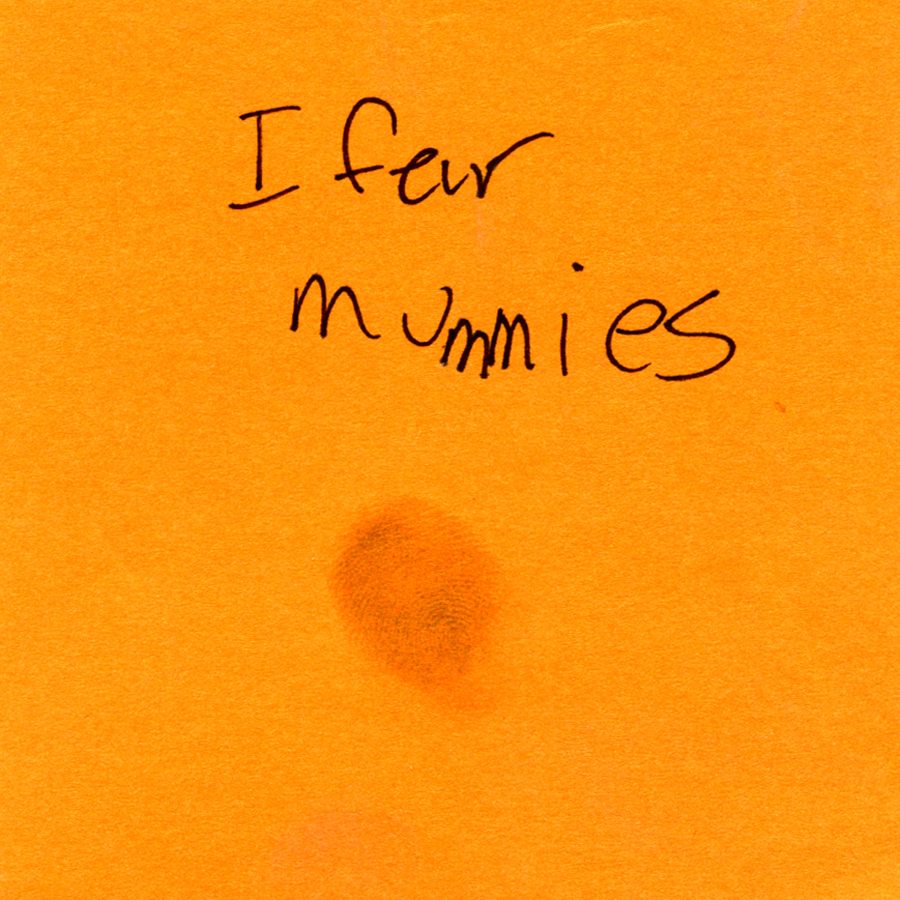 I fear
mummies